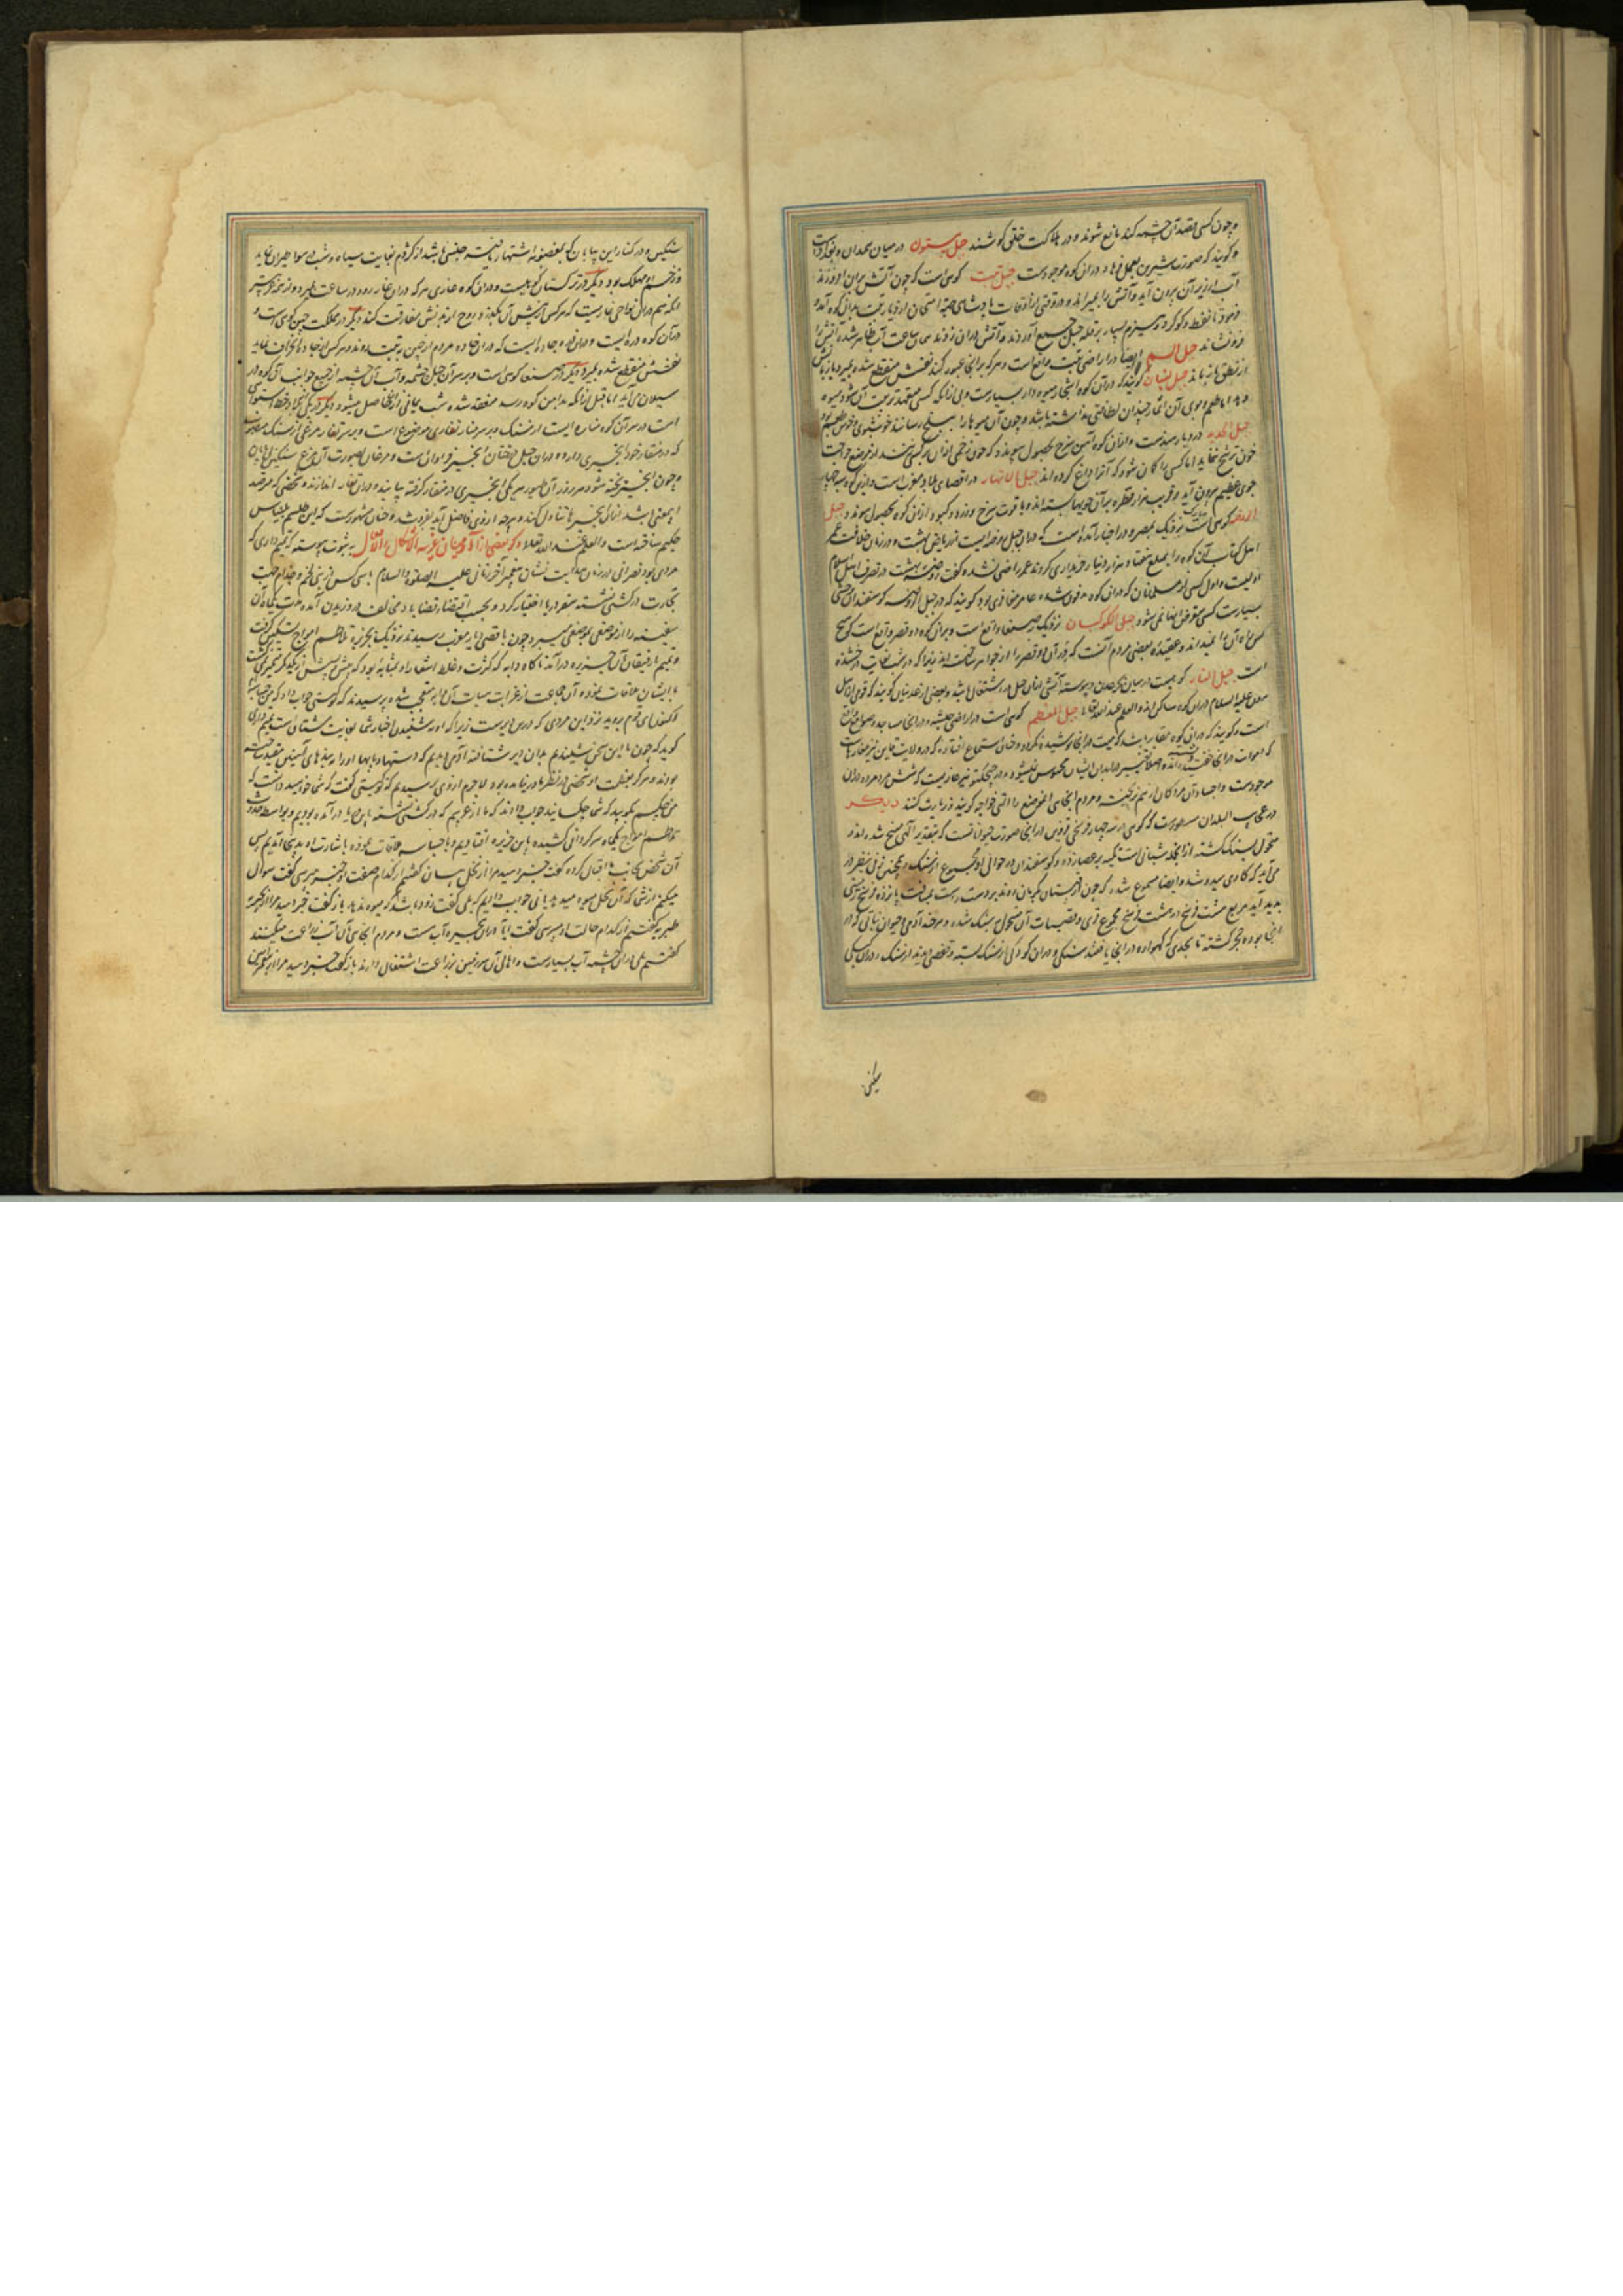 و چون کسی قصد آن چشمه کند مانع شوند و در هلاکت خلق کوشند جبل بیستون در میان همدان و
و کویند که صورت شیرین بعمل فرهاد در ان کوه موجودست جبل تبت کوهی است که چون آتش بران افروزند
آب از زیر آن بیرون آید و آتش را بمیراند و در وقتی از اوقات پادشاهی جهة امتحان از دیار تبت بران کوه آمد و
فرمود تا نفط و کوکرد و هیزم بسیار بر قله جبل جمع آوردند و آتش دران زدند همان ساعت آب ظاهر شده آتش را
فرو نشاند جبل السم ایضا در اراضی تبت واقع است و هر که بر انجا عبور کند نفسش منقطع شده بمیرد یا زبانش
از نطق باز ماند جبل کویند که در آن کوه اشجار میوه دار بسیارست ولی آنکه کسی متعهد تربیت آن شود میوه
دهد اما طعم و بوی آن اثمار چندان لطافتی نداشته باشد و چون آن میوها را به بلخ رسانند خوشبوی و خوش طعم شود
جبل الحدید در دیار هندست و از ان کوه آهن سرخ بحصول پیوندد که چون زخمی از ان بر کسی زنند از موضع جراحت
خون ترشح ننماید اما کسی را کمان شود که آنرا داغ کرده اند جبل الانهار در اقصای بلاد مغرب است و از ان کوه چهار
جوی عظیم بیرون آید و قریب هزار قنطره بر آن جویها بسته اند و یاقوت سرخ و زرد و کبود از ان کوه بحصول پیوندد جبل
کوهی است نزدیک بمصر و در اخبار آمده است که در ان جبل روضه ایست از ریاض بهشت و در زمان خلافت عمر
اهل کتاب آن کوه را بمبلغ هفتاد هزار دینار خریداری کردند عمر راضی نشده کفت روضه بهشت در تصرف اهل اسلام
اولیست و اول کسی از مسلمانان که در ان کوه مدفون شد عامر مغافری بود کویند که در جبل کوسفندان وحشی
بسیارست کسی متعرض آنها نمی شود جبل الکوکبان نزدیک بصنعا واقع است و بر ان کوه دو قصر واقع است که هیچ
کس راه آن را نمیداند و عقیده بعضی مردم آنست که آن دو قصر را از جواهر ساخته اند زیرا که در شب بغایت درخشنده
است جبل النار کوهیست در میان و پیوسته آتشی از ان جبل در اشتغال باشد و بعضی از کویند که قوم
هود علیه السلام در ان کوه ساکن اند و العلم عند الله تعالی جبل المعظم کوهی است در اراضی حبشه و در انجا مساجد و صوامع
است و کویند که در ان کوه باشد که میت در انجا پوشیده نکردد و چنان استماع افتاده که در ولایت نیز مغارهاست
که اموات در انجا اصلا تغییر در ابدان ایشان محسوس نمیشود و در نیز غاریست که شش مرد مرده در ان
موجودست و اجساد آن مردکان از هم نریخته و مردم آنجا آن موضع را خواجه کویند و زیارت کنند دیکر
در عجایب البلدان مسطورست که کوهی در سه چهار فرسخی قزوین در انجا صورت حیواناتست که بتقدیر الهی مسخ شده اند و
متحول بسنک کشته از انجمله شبانی است تکیه بر عصا زده و کوسفندان در حوالی او مجموع از سنک و همچنین زنی بنظر در
می آید که کاوی میدوشد و ایضا مسموع شده که چون از قبرستان روند بر دست راست بمسافت پانزده فرسخ
پدید آید مربع هشت فرسخ در هشت فرسخ مجموع قری و قصبات آن متحول بسنک شده و هر چه آدمی و حیوان و نباتی که در
آنجا بوده حجر کشته تا بحدی که کهواره در انجا یافتند سنکی و در ان کودکی از سنک بسته و شخصی دیدند از سنک
سنکین
سنکین و در کنار این بیابان که بمفضونه اشتهار یافته جنسی باشد از کژدم بغایت سیاه و شب در هوا طیران نماید
و زخم او مهلک بود دیکر در ترکستان کوهیست و در ان کوه غاری هر که در ان غار رود در ساعت بمیرد و از همه غریبتر
انکه هم در ان نواحی غاریست که هر کس از پیش آن بکذرد روح از بدنش مفارقت کند دیکر در مملکت چین کوهی است و
در آن کوه دره ایست و در ان دره جاده ایست که در ان جاده مردم از چین به تبت روند و هر کس از جاده انحراف نماید
نفسش منقطع شده بمیرد دیکر در صنعا کوهی است و بر سر آن جبل چشمه و آب آن چشمه از جمیع جوانب آن کوه در
سیلان می آید اما قبل از انکه بدامن کوه رسد منعقد شده شب یمانی از ان حاصل میشود دیکر در یکی از بلاد خط استوا
است و بر سر آن کوه مناره ایست از سنک و بر سر منار تغاری موضوع است و بر سر تغار مرغی از سنک
که در منقار خود انجیری دارد و در ان جبل درختان انجیر فراوان است و مرغان بصورت آن مرغ سنکین
و چون انجیر پخته شود هر روز از آن طیور هر یکی انجیری در منقار کرفته بیاید و در ان تغار اندازد و شخصی که مترصد
این معنی باشد از آن انجیرها تناول کند و هر چه از وی فاضل آید بفروشد و چنان مشهورست که این طلسم بلیناس
حکیم ساخته است و العلم عند الله تعالی ذکر بعضی از آدمیان غریبه الاشکال و الافعال به ثبوت پیوسته که تمیم داری که
مردی بود نصرانی در زمان هدایت نشان پیغمبر آخر زمان علیه الصلوة و السلام با سی کس از بنی لخم و جذام جهت
تجارت در کشتی نشسته سفر دریا اختیار کرد و بحسب اقتضاء قضا باد مخالف در وزیدن آمده مدت یکماه آن
سفینه را از موضعی بموضعی میبرد و چون باقصی دیار مغرب رسیدند نزدیک بجزیره تلاطم امواج تسکین یافت
و تمیم با رفیقان آن جزیره در آمد ناکاه دابه که کثرت و غلظ اشعار او بمثابه بود که پیش و پسش از یکدیکر تمییز نمی کشت
با ایشان ملاقات نموده آن جماعت از غرابت هیات آن دابه متعجب شده پرسیدند که تو کیستی جواب داد که من جساسه ام
و کفت ای قوم بروید نزد این مردی که در این دیرست زیرا که او بشنیدن اخبار شما بغایت مشتاق است تمیم داری
کوید که چون ما این سخن شنیدیم بدان دیر شتافته آدمی دیدیم که دستها و پایها او را به بندهای آهنین مقید ساخته
بودند و هرکز بعظمت او شخصی در نظر ما در نیامده بود لاجرم از وی پرسیدیم که تو کیستی کفت که شما خواهید دانست که
من کیستم بکویید که شما چه کسانید جواب دادند که ما از عربیم که در کشتی نشسته باین دریا در آمده بودیم و بواسطه
تلاطم امواج یکماه سرکردانی کشیده باین جزیره افتادیم و با جساسه ملاقات نموده باشارت او بدینجا آمدیم پس
آن شخص بجانب ما اقبال کرده کفت خبر دهید مرا از نخل بیسان کفتیم از کدام صفت او خبر می پرسی کفت سوال
میکنم از نخل که آن نخل میوه میدهد یا نی جواب دادیم که بلی کفت زود باشد که میوه ندهد باز کفت خبر دهید مرا از بحیره
طبریه کفتیم از کدام حالت او می پرسی کفت آیا در آن بحیره آب هست و مردم انجا از آن آب زراعت میکنند
کفتیم بلی در ان چشمه آب بسیارست و اهالی آن سرزمین بزراعت اشتغال دارند باز کفت خبر دهید مرا از پیغمبر امیین